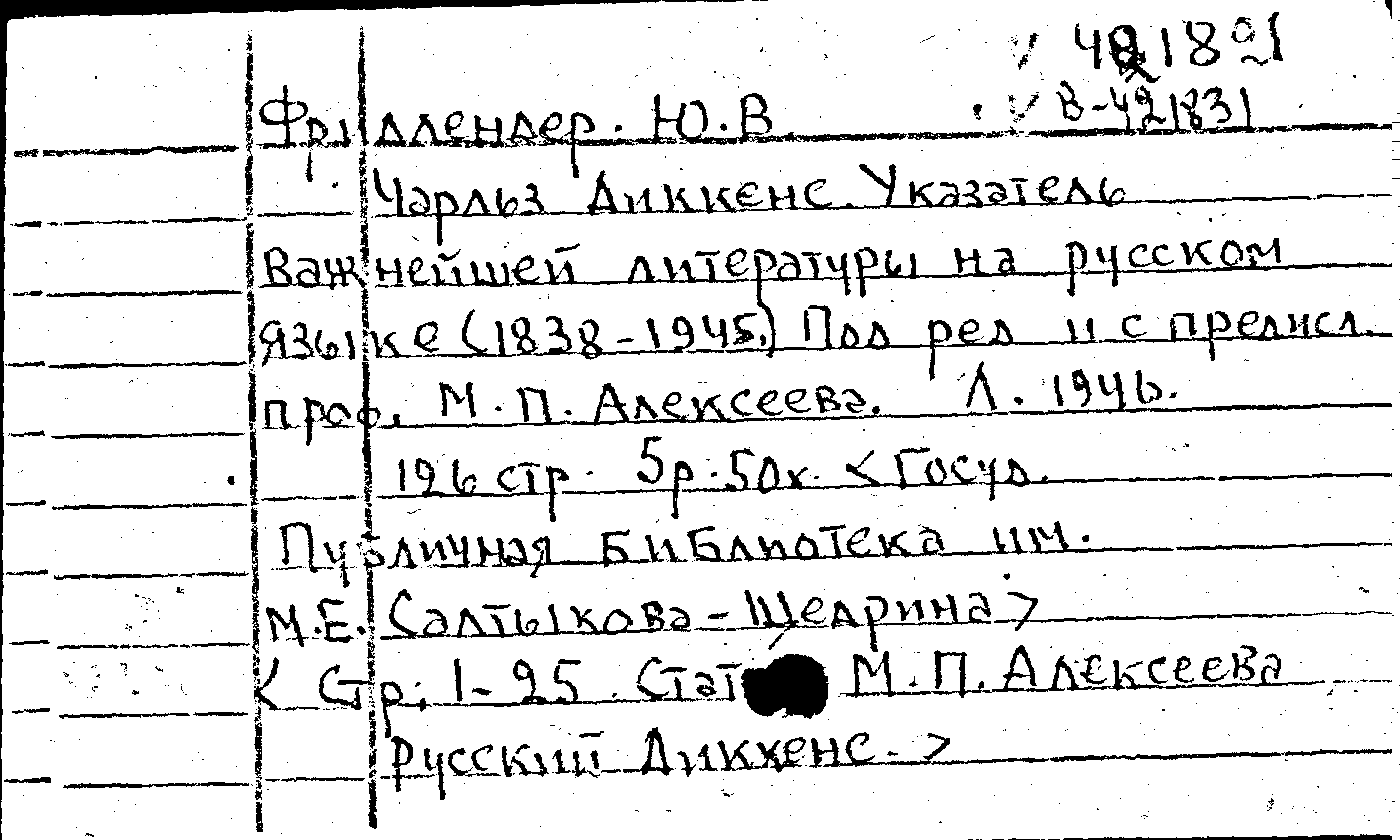 V 421891
Фридлендер. Ю.В. V В-421831
Чарльз Диккенс. Указатель
Важнейшей литературы на русском
языке (1838-1945.) Под ред и с предисл.
проф. М.П. Алексеева. Л. 1946.
126 стр. 5р.50к. < Госуд.
Публичная Библиотека им.
М.Е. Салтыкова-Щедрина >
< Стр. 1-25. Стат М.П. Алексеева
Русский Диккенс. >